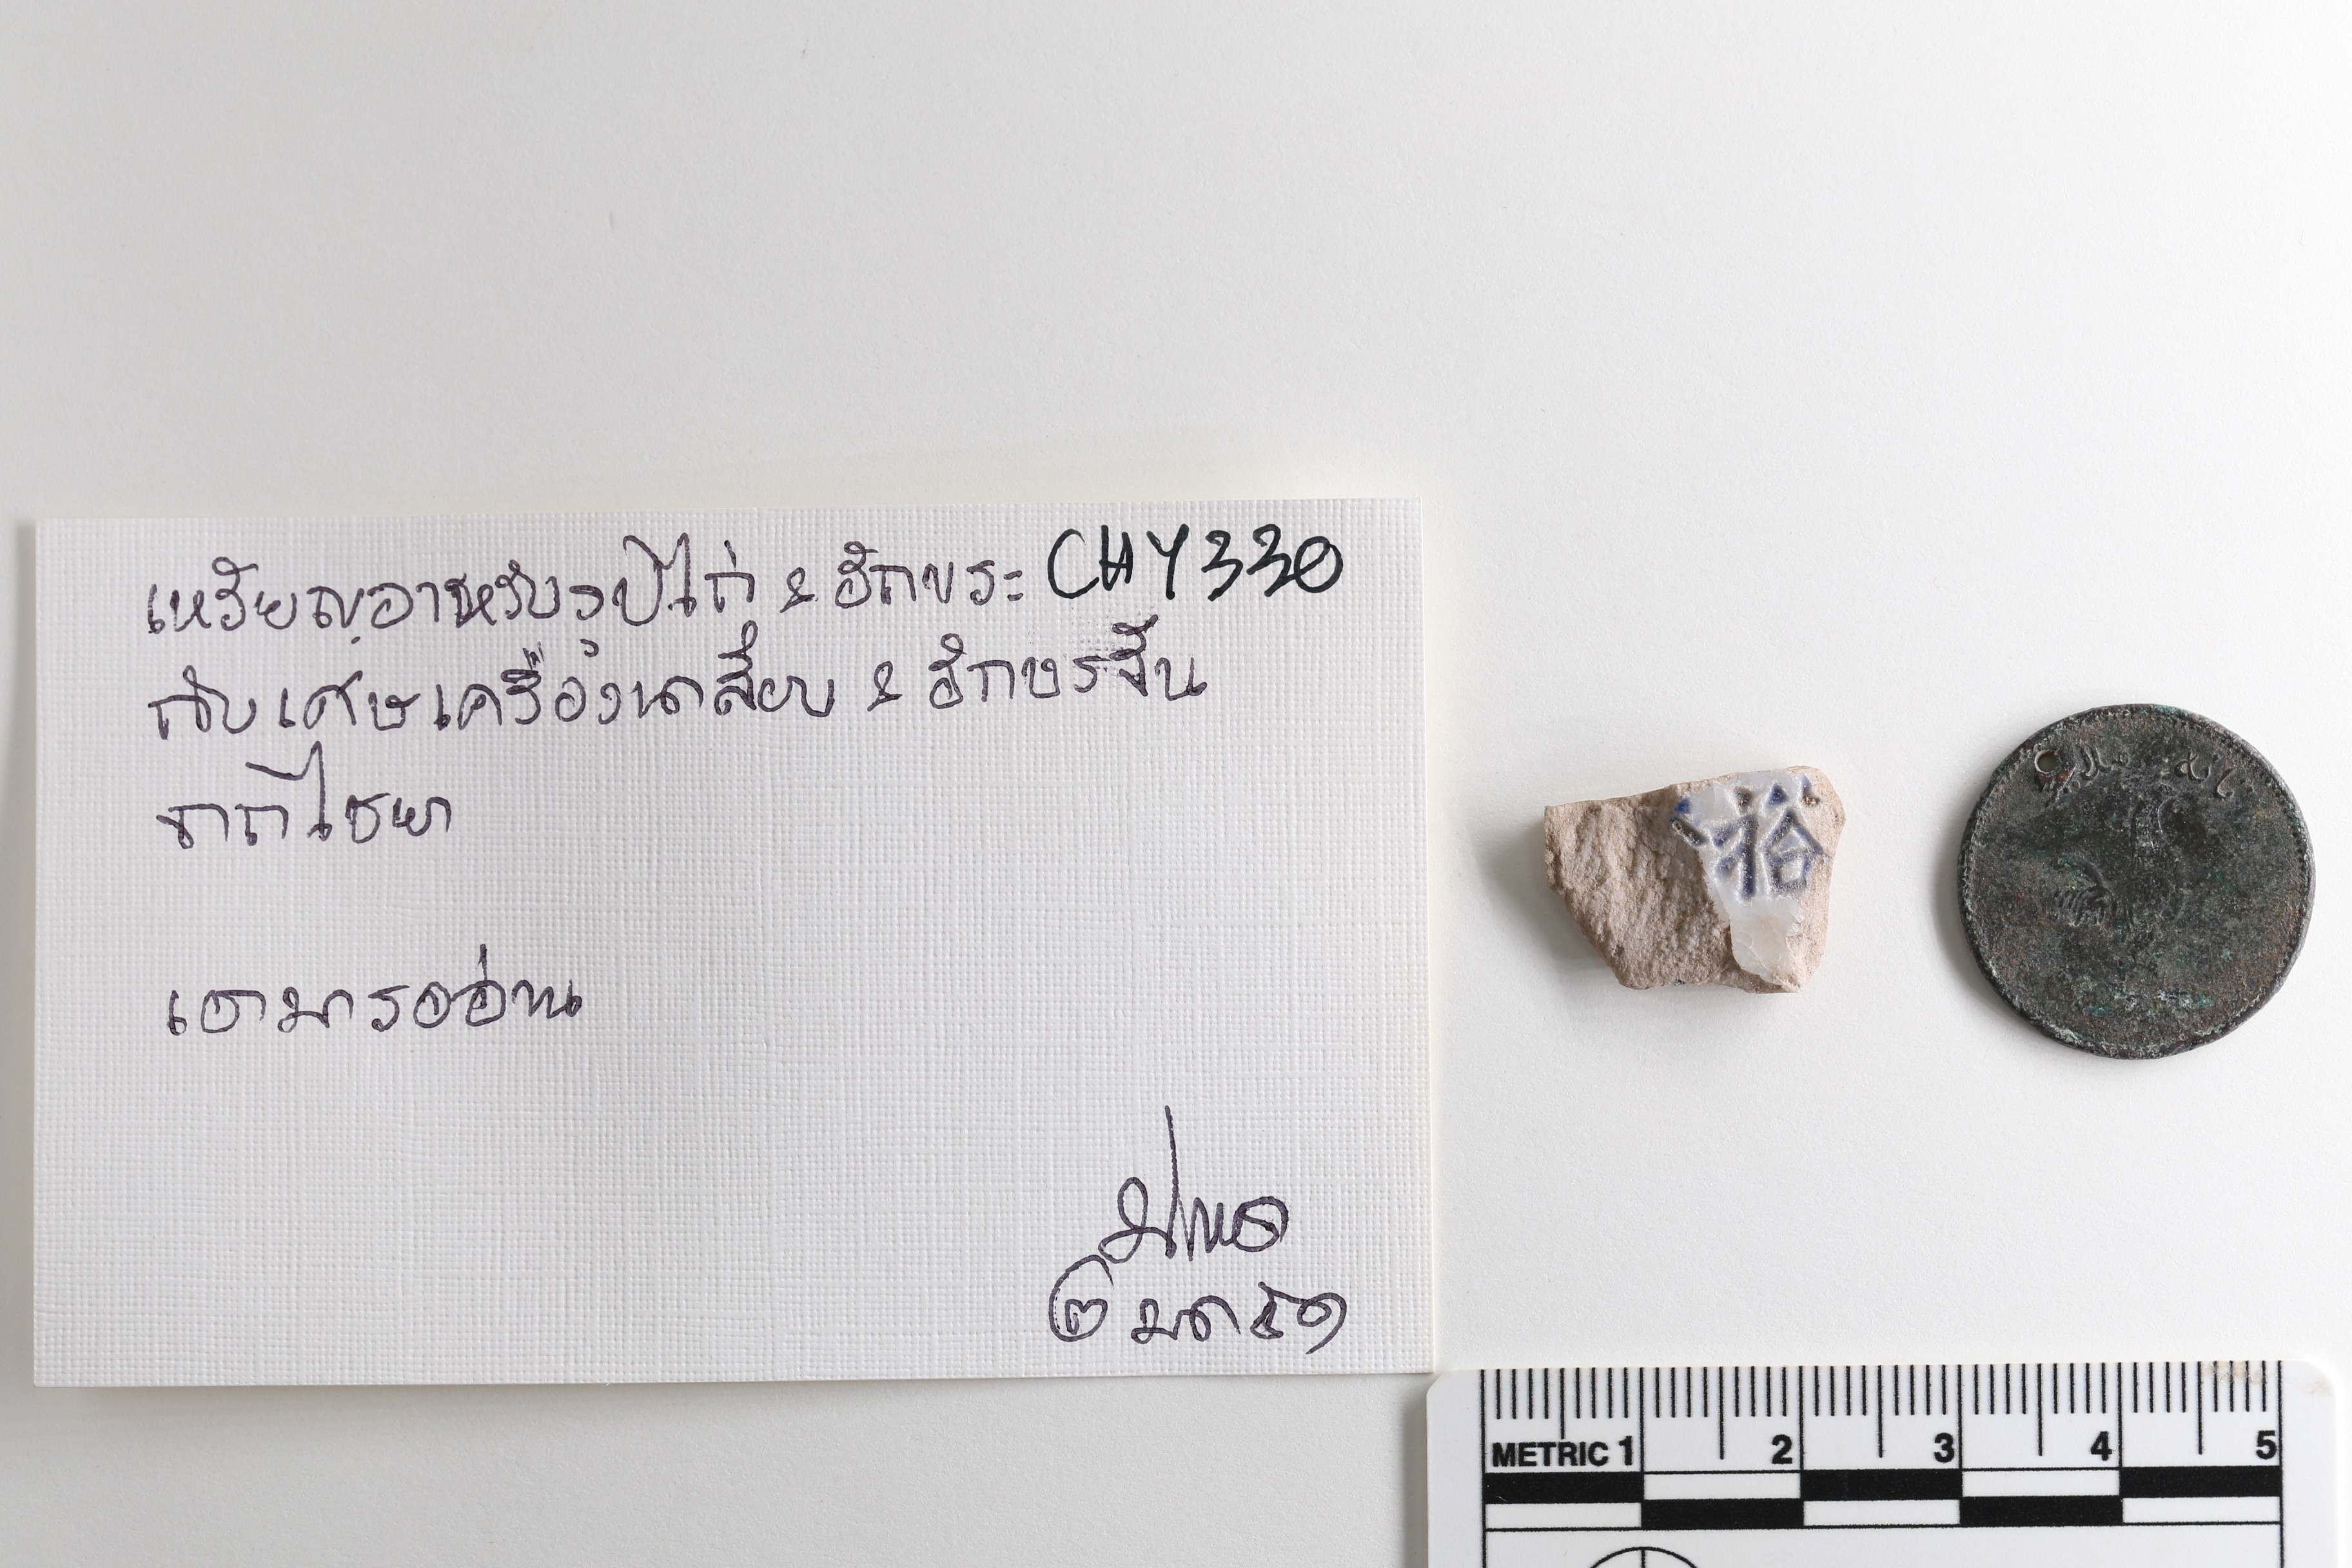 เหรียญอาหรับรูปไก่ & อักขระ CHY330
กับเศษเครื่องเคลือบ & อักษรจีน
จากไชยา
เอามารออ่าน
๒ มค ๕๑
裕
METRIC 1 2 3 4 5